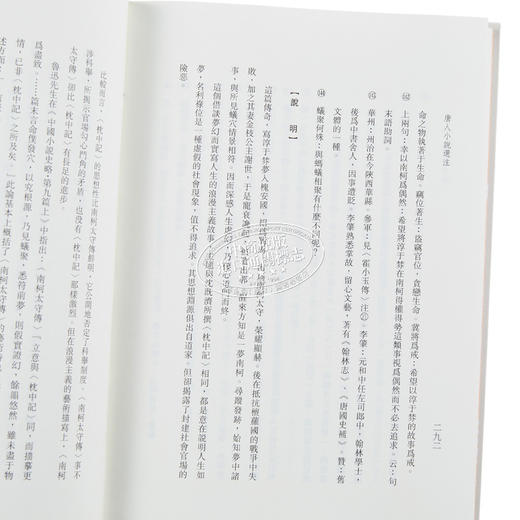 唐人小說選注
二九二
命之物就著于生命。竊位著生：盜竊官位，貪戀生命。冀將爲戒：希望以淳于棼的故事爲戒。
上兩句：幸以南柯爲偶然：希望將淳于棼在南柯得權得勢這類事視爲偶然而不必去追求。云：句
末語助詞。
華州：州治在今陝西華縣。參軍：見《霍小玉傳》注㉑。李肇：元和中任左司郎中，翰林學士，
後爲中書舍人，因事遭貶。李肇熟悉掌故，留心文藝，著有《翰林志》、《唐國史補》。贊：舊
文體的一種。
蟻聚何殊：與螞蟻相聚有什麽不同呢？
【說 明】
這篇傳奇，寫淳于棼夢入槐安國，招爲駙馬，出爲南柯太守，榮耀顯赫。後在抵抗檀蘿國的戰爭中失
敗，加之其妻金枝公主謝世，于是寵衰讒起，
來方知是一夢南柯。尋蹤發跡，始知夢中諸
事，與所見蟻穴情景相符。因而深感人生虛幻，乃棲心道門而終。
這個借談夢幻而實寫人生的浪漫主義故事，
沈既濟所撰《枕中記》相同，都是意在説明人生如
夢，名利祿位是一種虛假的社會現象，值不得追求。其思想淵源俱出自道家。但卻揭露了封建社會官場的
險惡。
比較而言，《枕中記》的思想性比南柯太守傳鮮明，它公開地否定了科舉制度。《南柯太守傳》事不
涉科舉，所揭示官場勾心鬥角的矛盾，也没有《枕中記》那樣激烈。但在浪漫主義的藝術描寫上，《南柯
太守傳》卻比《枕中記》有長足的進步。
魯迅先生在《中國小說史略·第九篇上》中指出：《南柯太守傳》「立意與《枕中記》同，而描摹更
爲盡致。……篇末言命僕發穴，以究根源，乃見蟻聚，悉符前夢，則假實證幻，餘韻悠然，雖未盡于物
情，已非《枕中記》之所及矣。」此論基本上概括了《南柯太守傳》的
述方面：